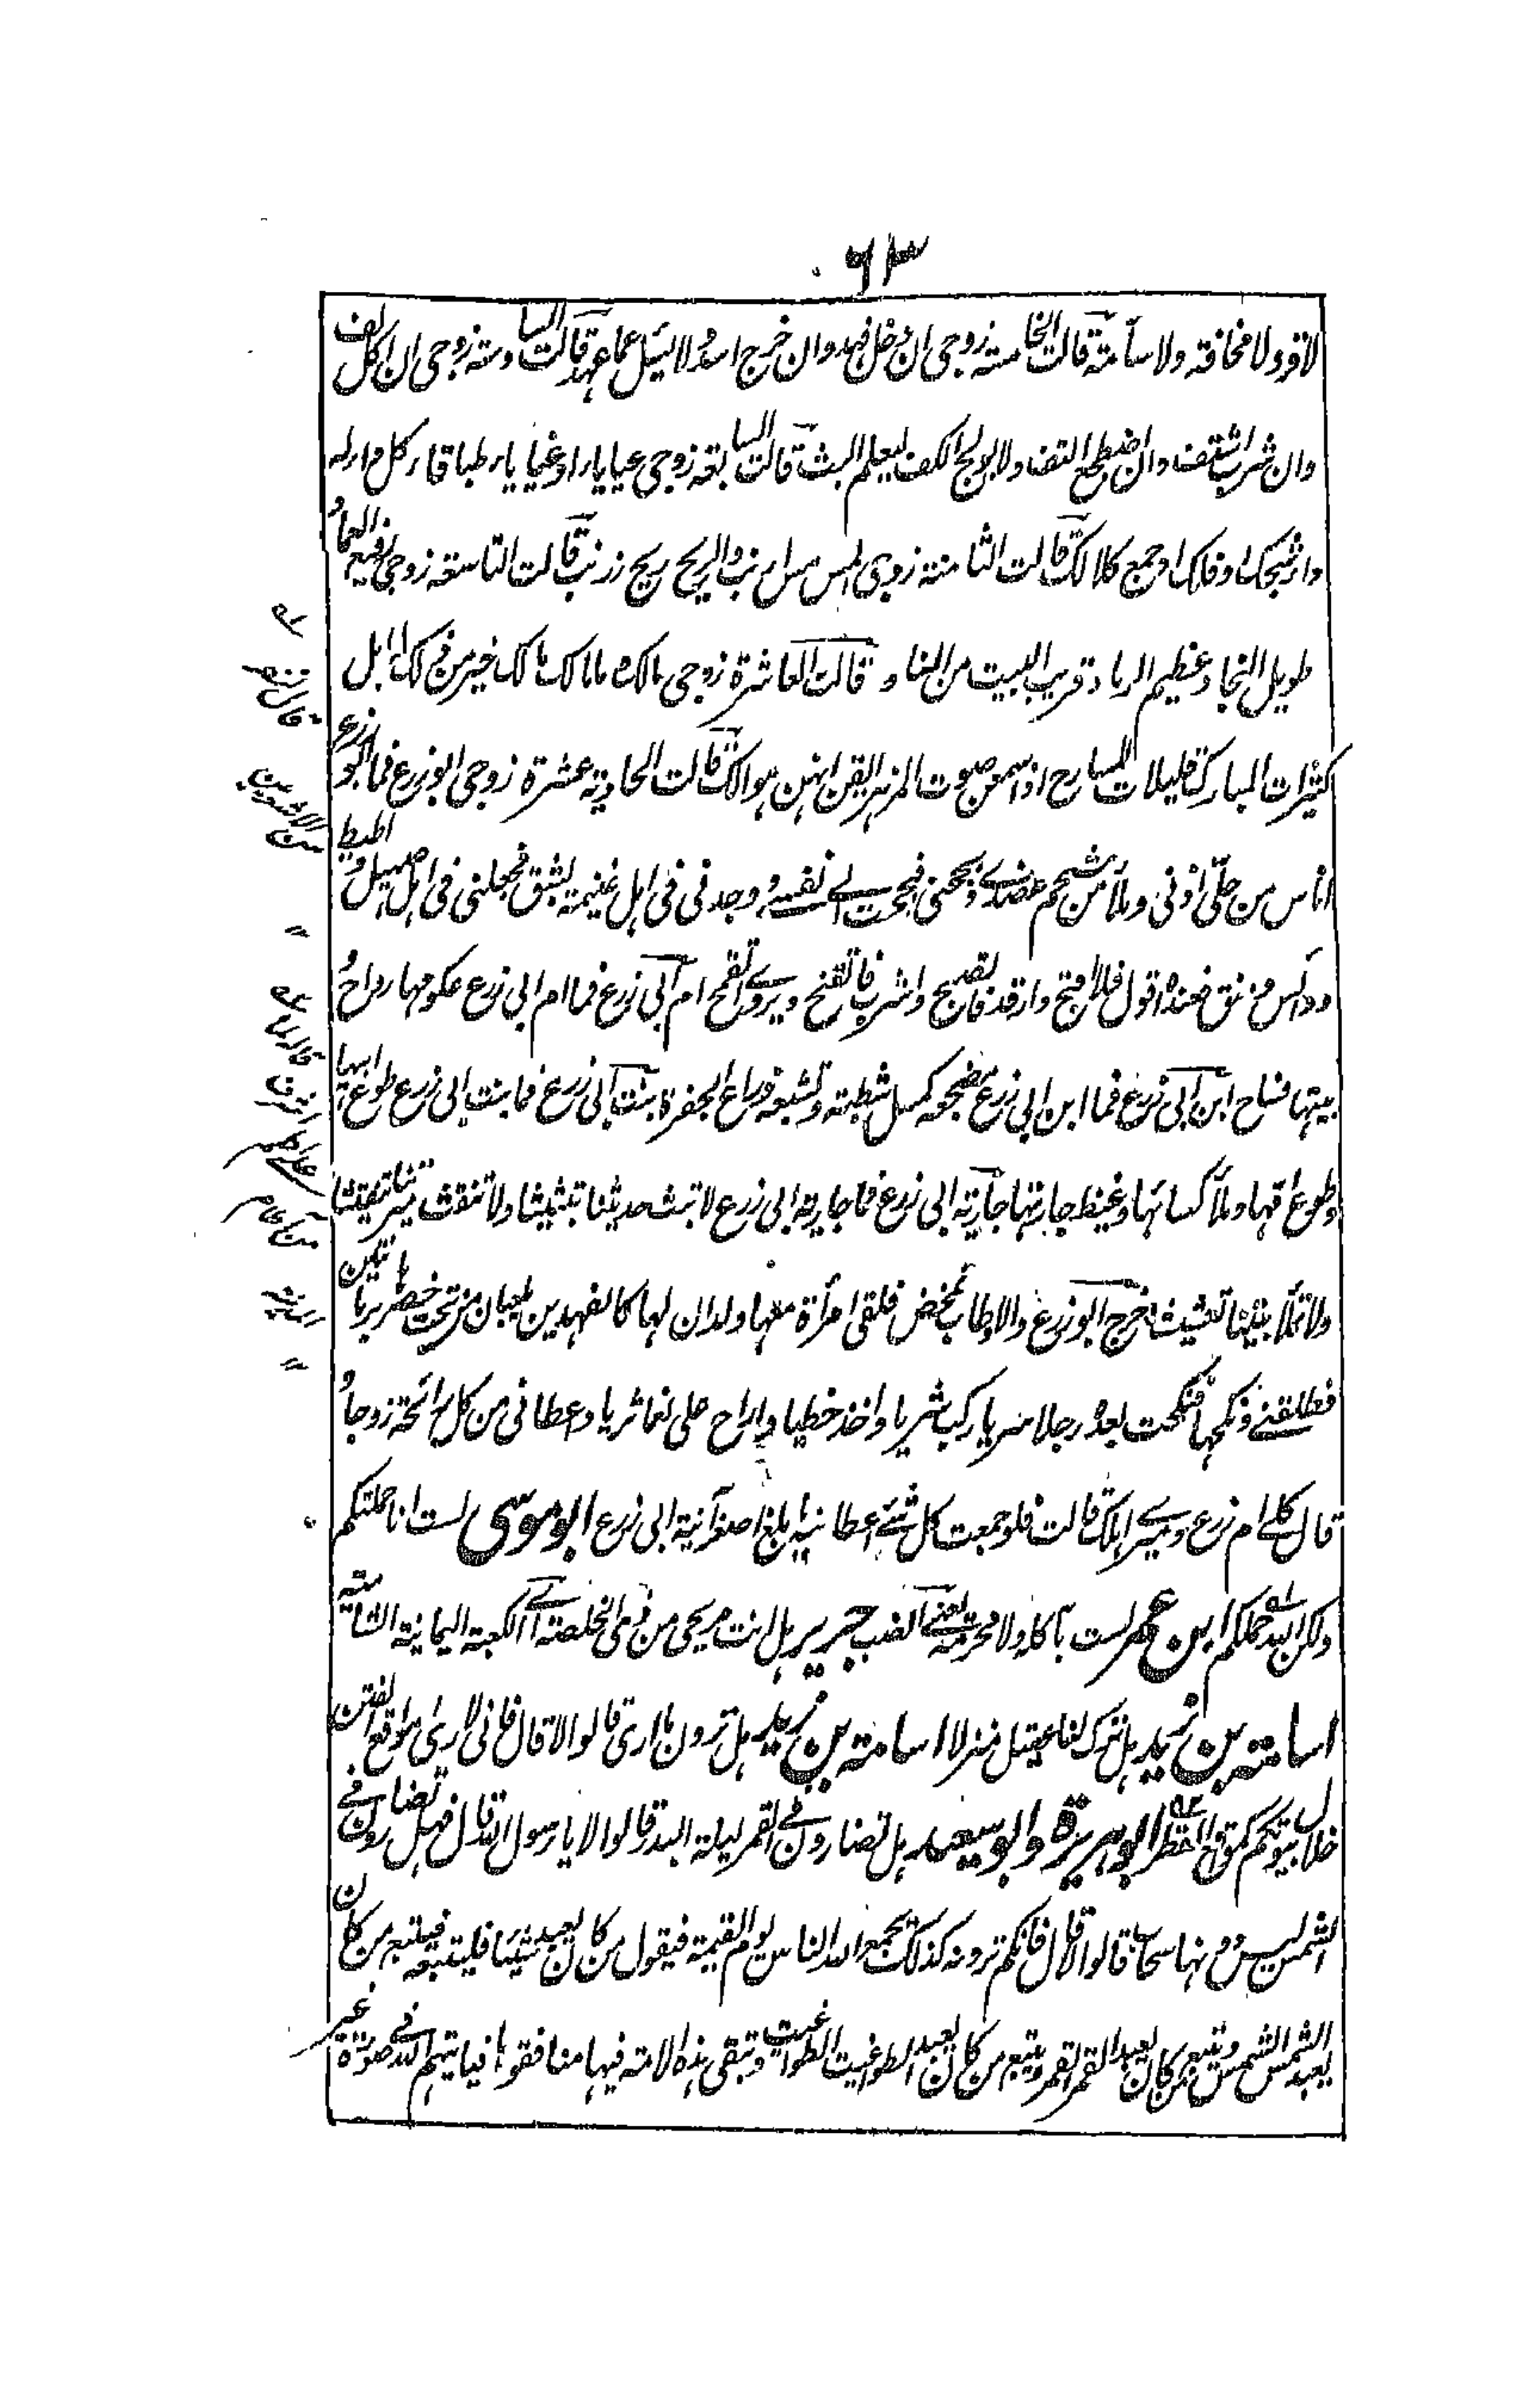 ٦٣
لا قر ولا مخافة ولا سآمة قالت الخامسة زوجي ان دخل فهد وان خرج اسد ولا يسئل عما عهد قالت السادسة زوجي ان اكل لف
وان شرب اشتف وان اضطجع التف ولا يولج الكف ليعلم البث قالت السابعة زوجي عيا ياء او غيا ياء طباقاء كل داء له داء
شجك او فلك او جمع كلا لك قالت الثامنة زوجي المس مس ارنب والريح ريح زرنب قالت التاسعة زوجي رفيع العماد
طويل النجاد عظيم الرماد قريب البيت من الناد قالت العاشرة زوجي مالك وما مالك مالك خير من ذلك له ابل
كثيرات المبارك قليلات المسارح اذا سمعن صوت المزهر ايقن انهن هوالك قالت الحادية عشرة زوجي ابو زرع فما ابو زرع
اناس من حلي اذني وملأ من شحم عضدي وبجحني فبجحت الي نفسي وجدني في اهل غنيمة بشق فجعلني في اهل صهيل واطيط
ودائس ومنق فعنده اقول فلا اقبح وارقد فاتصبح واشرب فاتقنح ويروى فاتقمح ام ابي زرع فما ام ابي زرع عكومها رداح و
بيتها فساح ابن ابي زرع فما ابن ابي زرع مضجعه كمسل شطبة وتشبعه ذراع الجفرة بنت ابي زرع فما بنت ابي زرع طوع ابيها
وطوع امها وملأ كسائها وغيظ جارتها جارية ابي زرع فما جارية ابي زرع لا تبث حديثنا تبثيثا ولا تنقث ميرتنا تنقيثا
ولا تملأ بيتنا تعشيشا خرج ابو زرع والاوطاب تمخض فلقي امرأة معها ولدان لها كالفهدين يلعبان من تحت خصرها برمانتين
فطلقني ونكحها فنكحت بعده رجلا سريا ركب شريا واخذ خطيا واراح علي نعما ثريا واعطاني من كل رائحة زوجا و
قال كلي ام زرع وميري اهلك قالت فلو جمعت كل شئ اعطانيه ما بلغ اصغر آنية ابي زرع ابو موسى لست انا حملتكم
ولكن الله حملكم ابن عمر لست بآكله ولا محرمه يعني الضب جرير هل انت مريحي من ذي الخلصة اي الكعبة اليمانية الشامية
اسامة بن زيد هل ترك لنا عقيل منزلا اسامة بن زيد هل ترون ما ارى قالوا لا قال فاني لارى مواقع الفتن
خلال بيوتكم كمواقع القطر ابو هريرة وابو سعيد هل تضارون في القمر ليلة البدر قالوا لا يا رسول الله قال فهل تضارون في
الشمس ليس دونها سحاب قالوا لا قال فانكم ترونه كذلك يجمع الله الناس يوم القيمة فيقول من كان يعبد شيئا فليتبعه فيتبع من كان
يعبد الشمس الشمس ويتبع من كان يعبد القمر القمر ويتبع من كان يعبد الطواغيت الطواغيت وتبقى هذه الامة فيها منافقوها فياتيهم الله في صورة غير